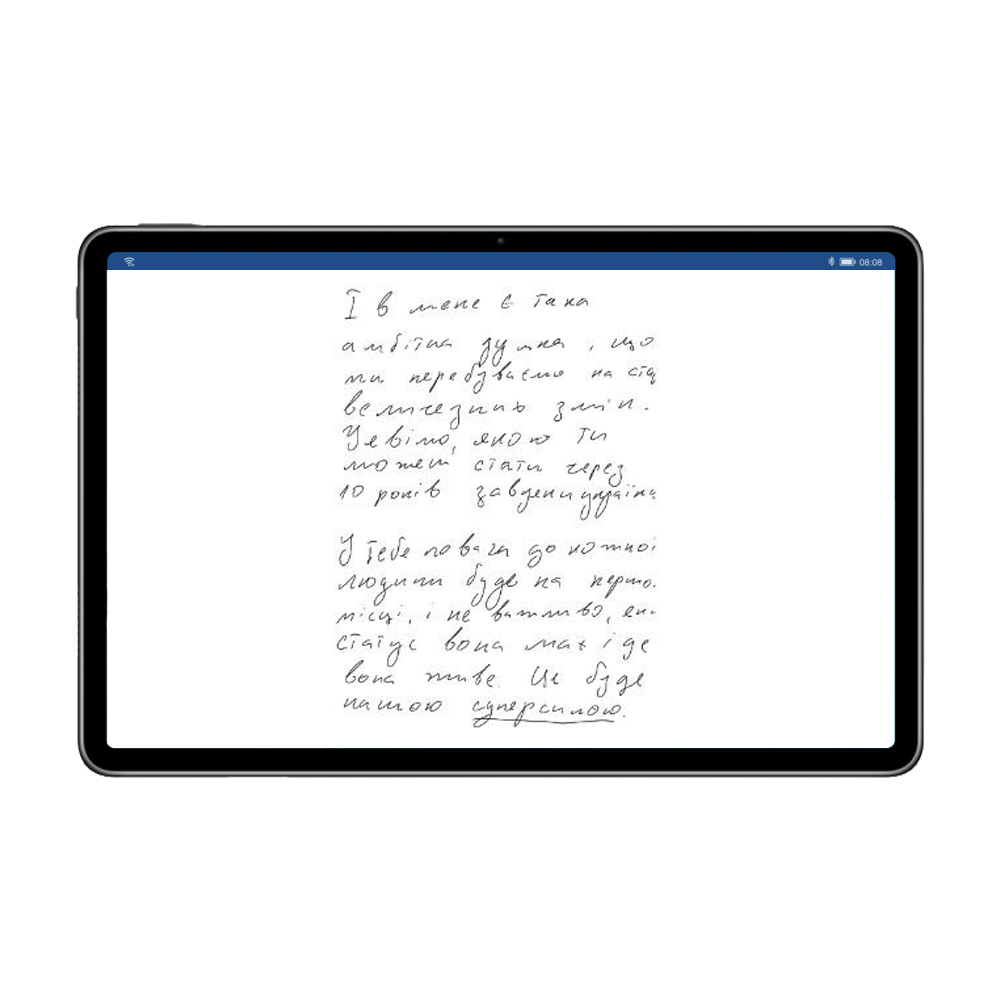 08:08
І в мене є така
амбітна думка, що
ми перебуваємо на
величезних змін.
Уявімо, якою ти
можеш стати через
10 років завдяки
У тебе повага до кожної
людини буде на
місці, і не важливо,
статус вона має і де
вона живе. Це буде
нашою суперсилою.